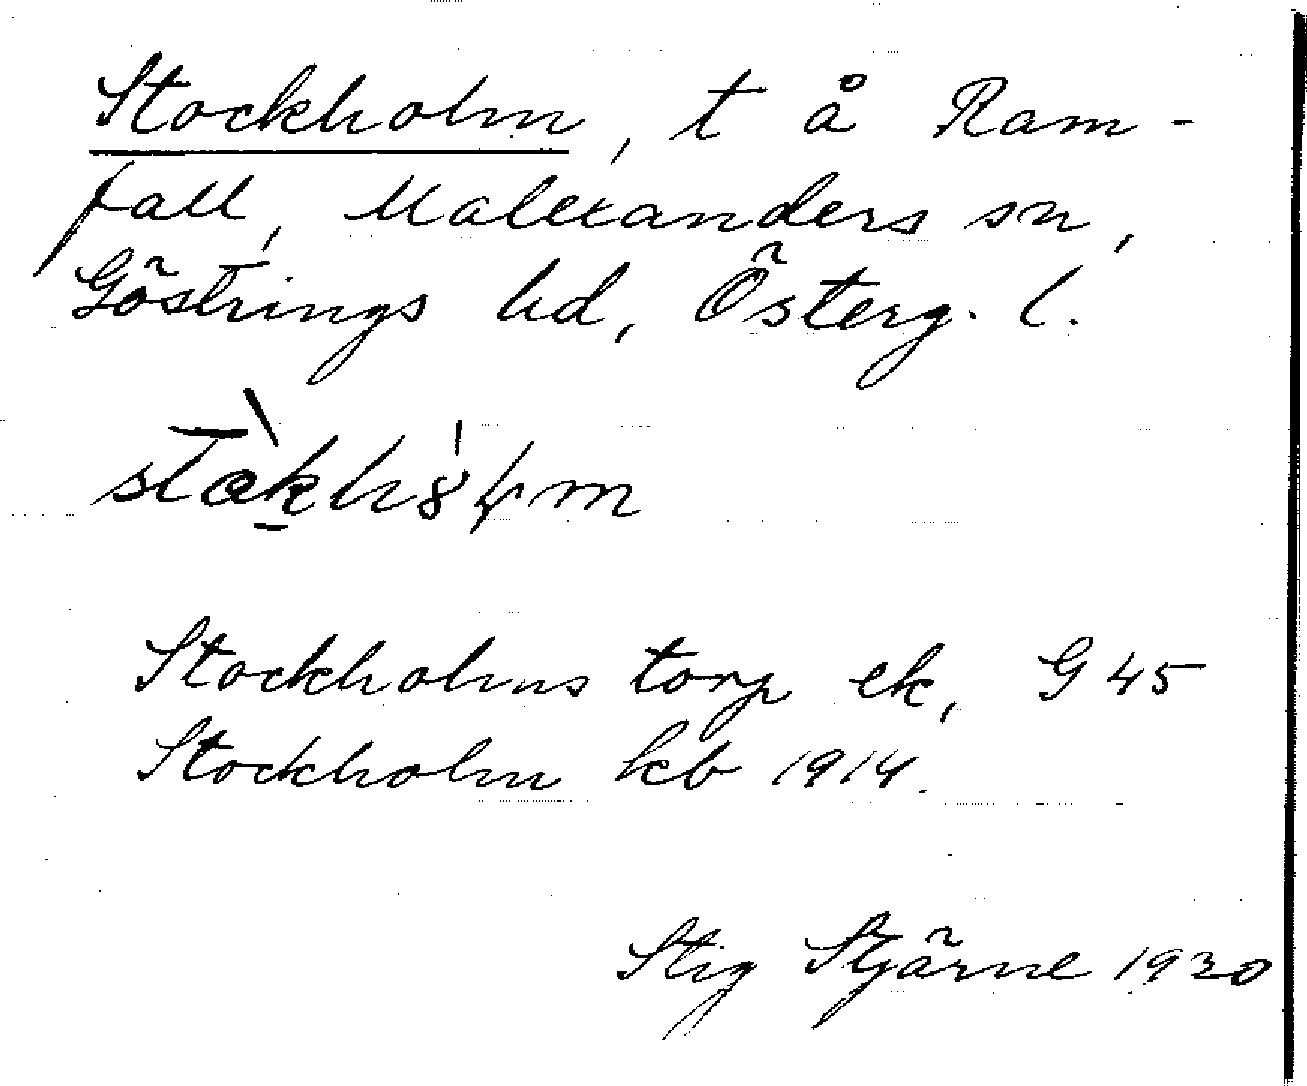 Stockholm, t å Ram-
fall, Malexanders sn,
Göstrings hd, Österg. l.
Stockholms torp ek, G 45
Stockholm kb 1914.
Stig Stjärne 1930